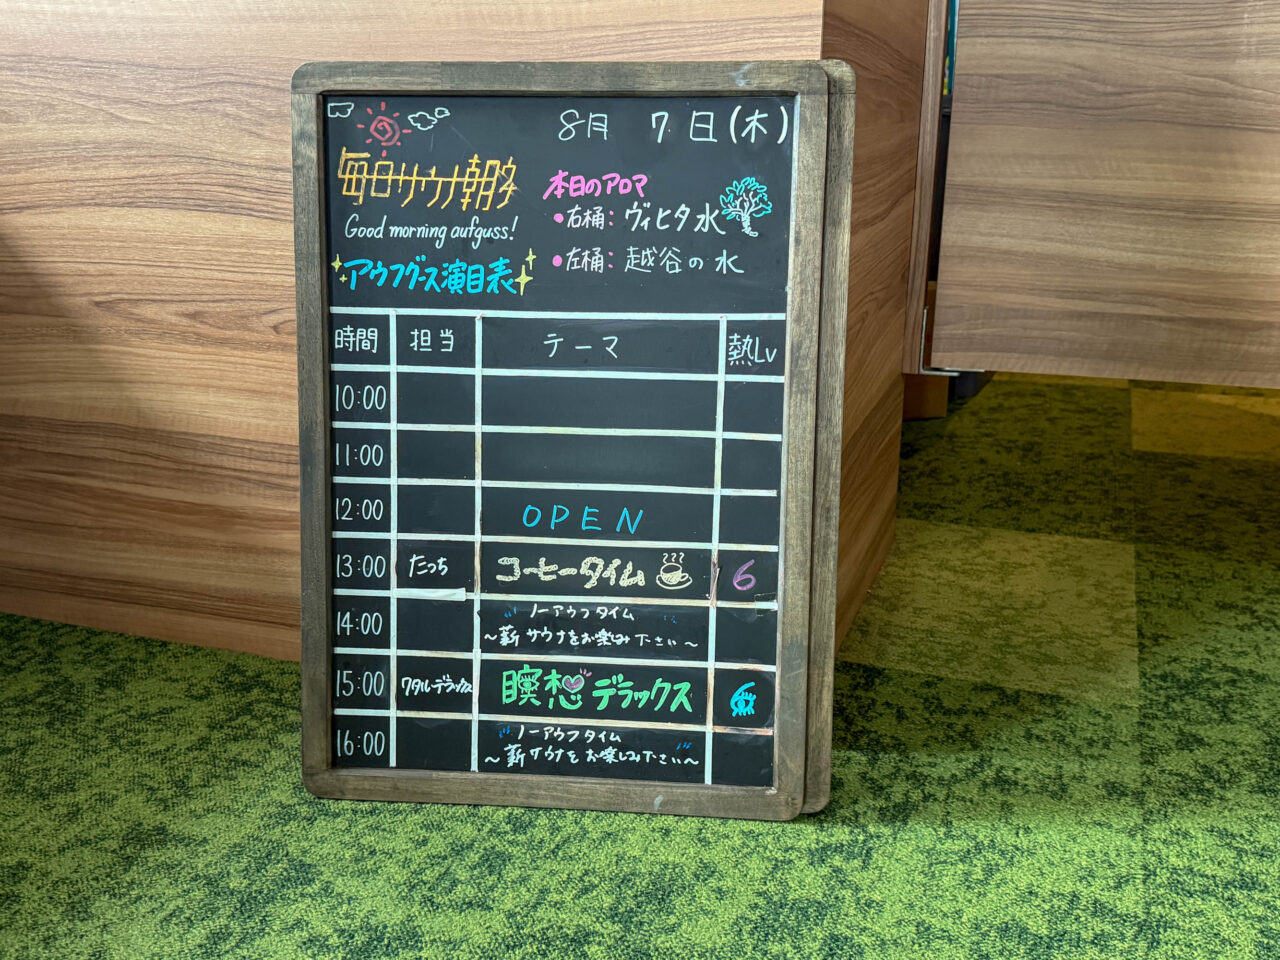 8月 7日(木)
毎日サウナ朝夕
Good morning aufguss!
アウフグース演目表
本日のアロマ
•右桶: ヴィヒタ水
•左桶: 越谷の水
時間 担当 テーマ 熱Lv
10:00
11:00
12:00 OPEN
13:00 たっち コーヒータイム 6
14:00 ノーアウフタイム
~薪サウナをお楽しみ下さい~
15:00 ワタル・デラックス 瞑想デラックス
16:00 ノーアウフタイム
~薪サウナをお楽しみ下さい~